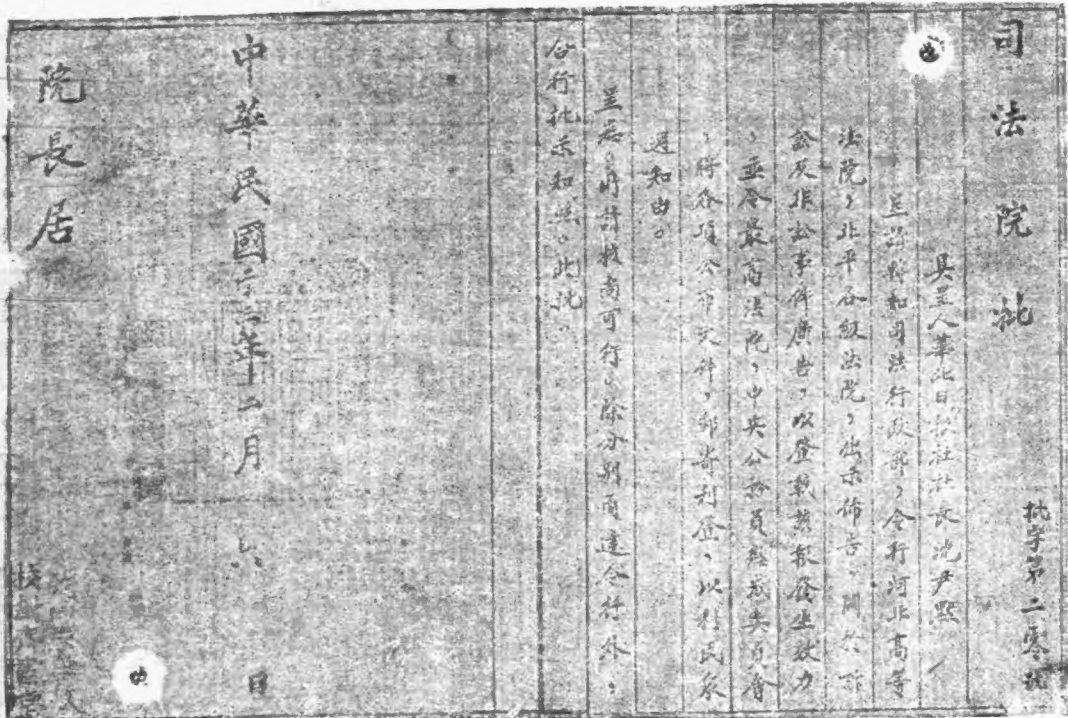 司法院批
批字第二零號
具呈人華北日報社社長沈尹默
呈請轉知司法行政部，令行河北高等
法院，北平各級法院，出示佈告，關於訴
訟及非訟事件廣告，以登載該報發生效力
，並令最高法院，中央公務員懲戒委員會
，將各項公布文件，郵寄刊登，以利民眾
週知由。
呈悉。所請核尚可行，除分別函達令行外，
合行批示知照。此批。
中華民國二十二年十二月六日
院長居